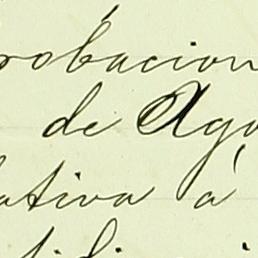 robacion
de Ago
ativa á